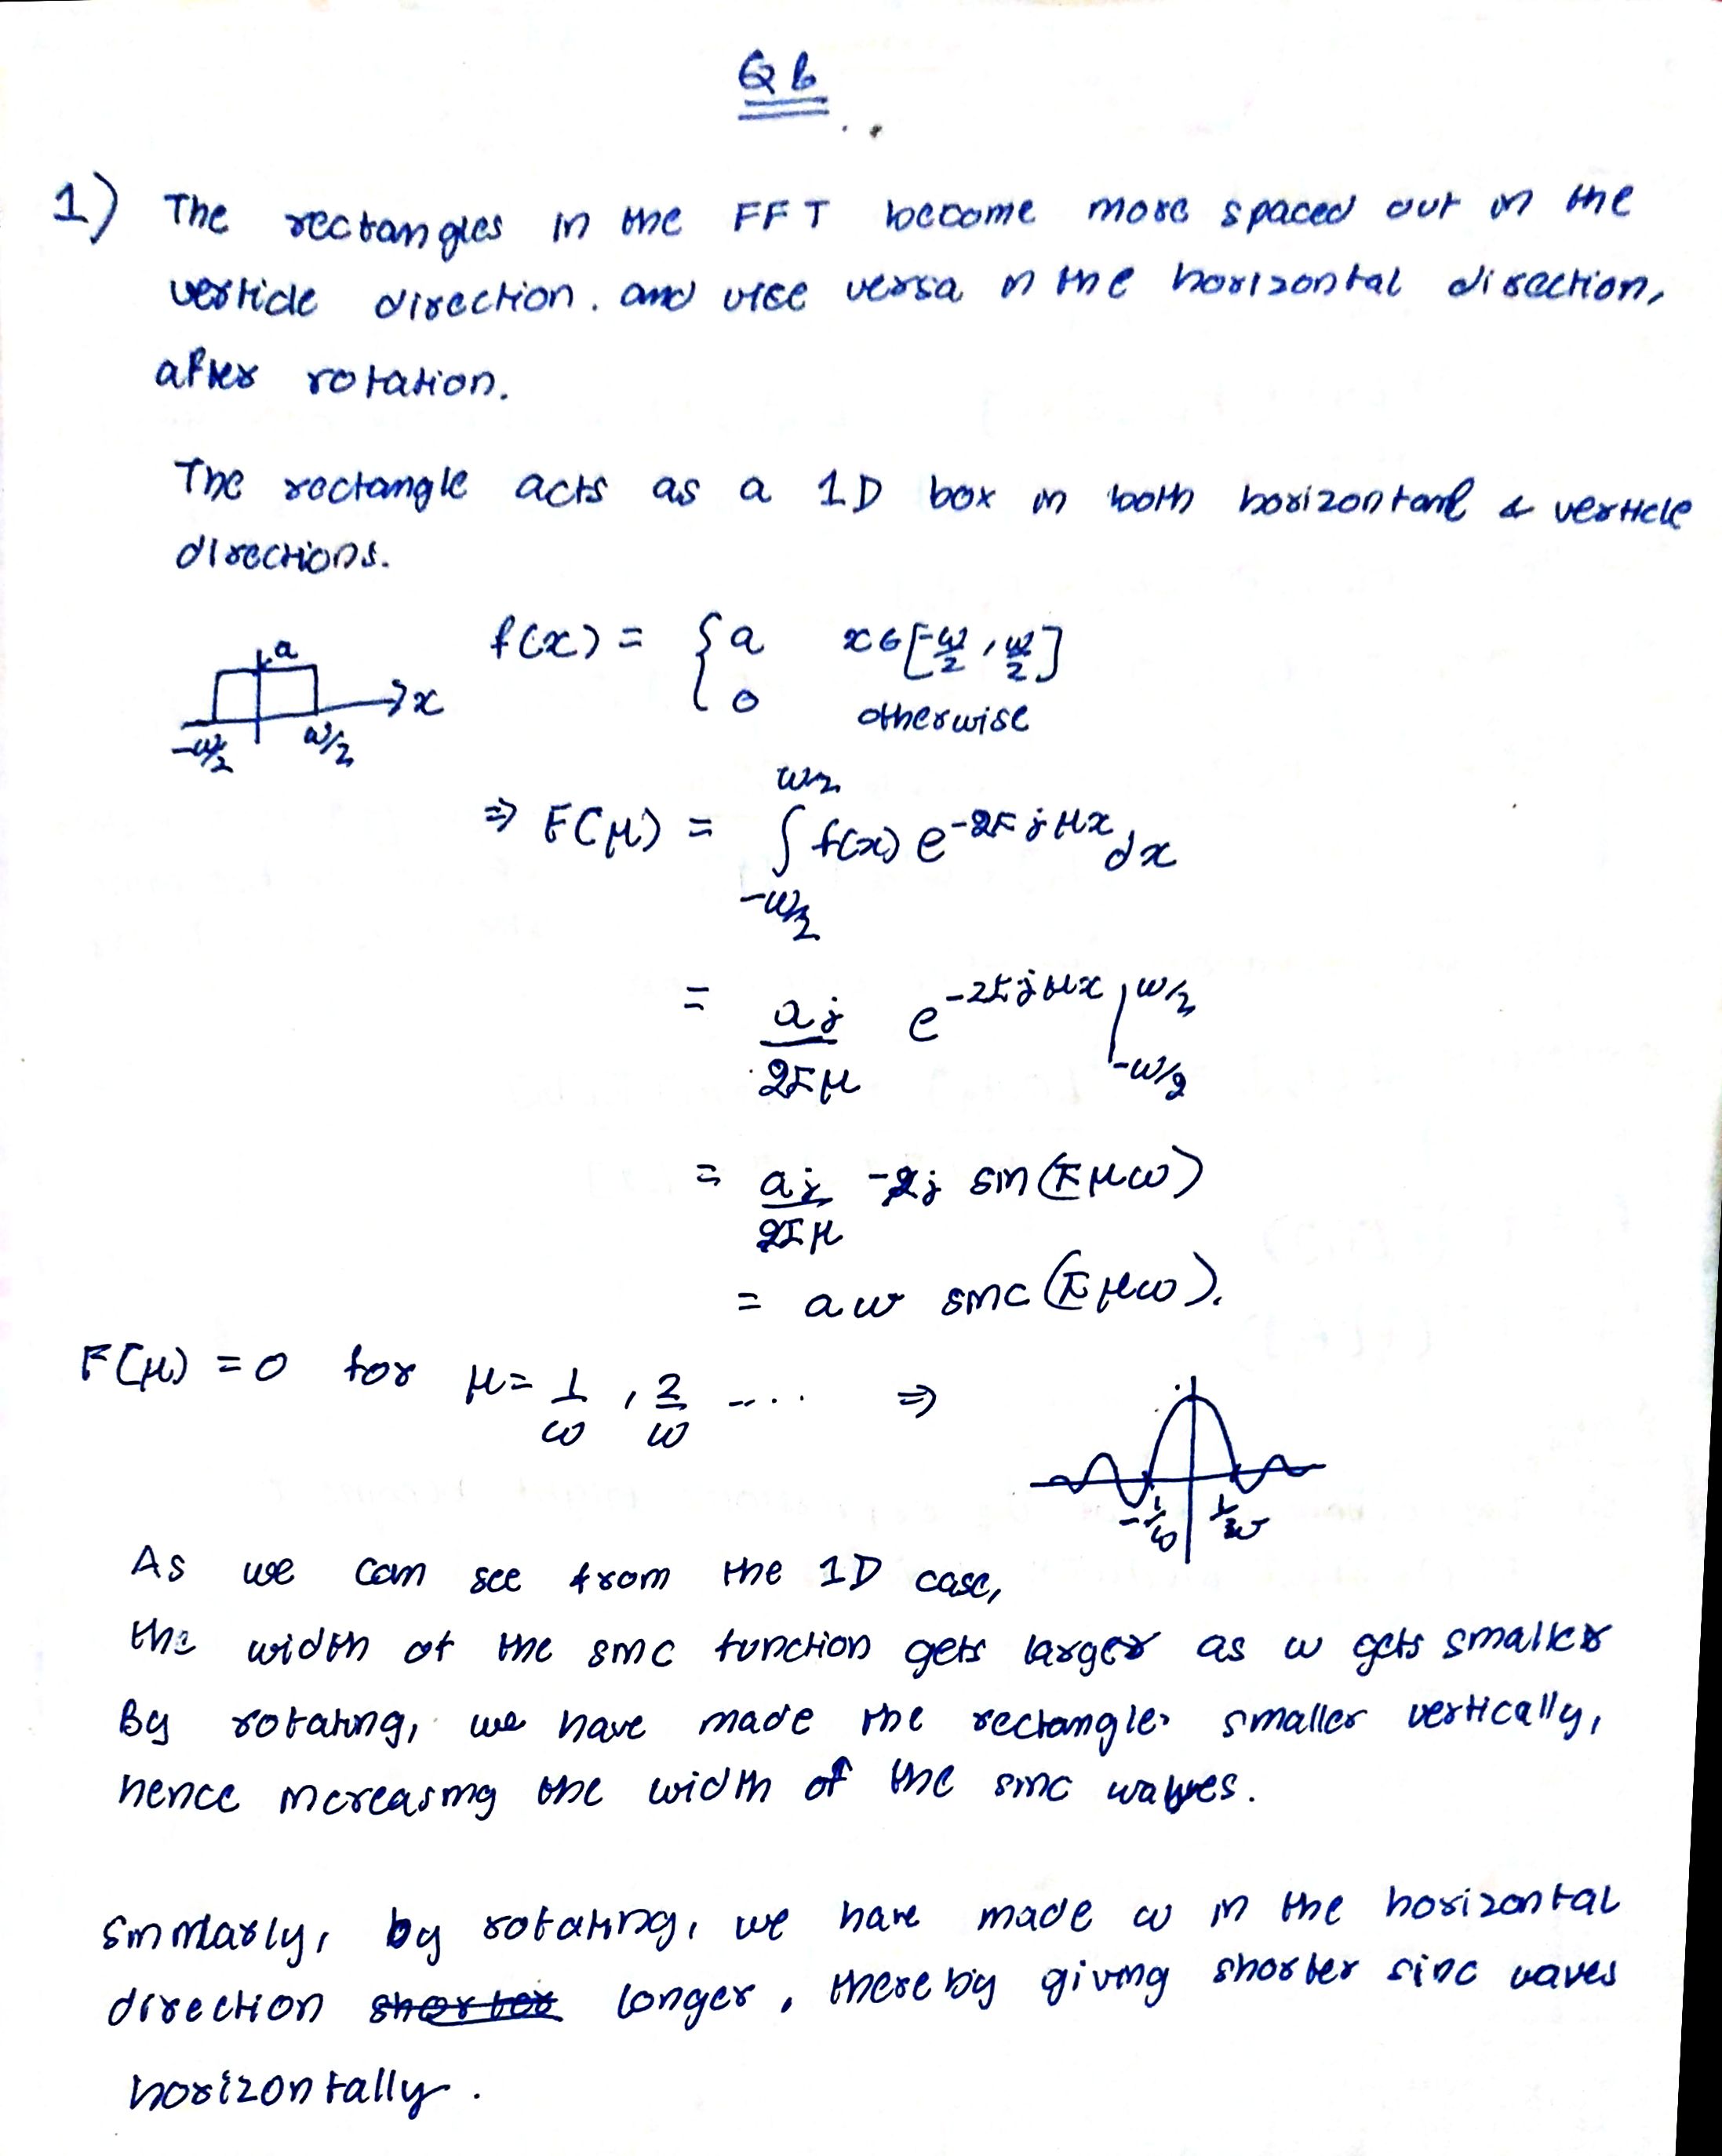 Q6
1) The rectangles in the FFT become more spaced out in the
verticle direction. and vice versa in the horizontal direction,
after rotation.
The rectangle acts as a 1D box in both horizontanl & verticle
directions.
a
f(x) = { a x ∈ [-w/2, w/2]
0 otherwise
→ x
-w/2 w/2
⇒ F(μ) = ∫_{-w/2}^{w/2} f(x) e^{-2πjμx} dx
= aj/2πμ e^{-2πjμx} |_{-w/2}^{w/2}
= aj/2πμ -2j sin(πμw)
= aw sinc(πμw).
F(μ) = 0 for μ = 1/w, 2/w .... ⇒
-1/w 1/w
As we can see from the 1D case,
the width of the sinc function gets larger as w gets smaller
By rotating, we have made the rectangle smaller vertically,
hence increasing the width of the sinc waves.
Similarly, by rotating, we have made w in the horizontal
direction shorter longer, thereby giving shorter sinc waves
horizontally.